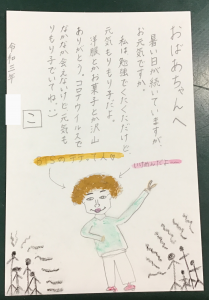 おばあちゃんへ
暑い日が続いていますが、
お元気ですか。
私は勉強でくたくただけど、
元気もりもり子だよ。
洋服とかお菓子とか沢山
ありがとう。コロナウイルスで
なかなか会えないけど元気も
りもり子でいてね(:)
令和三年
こ